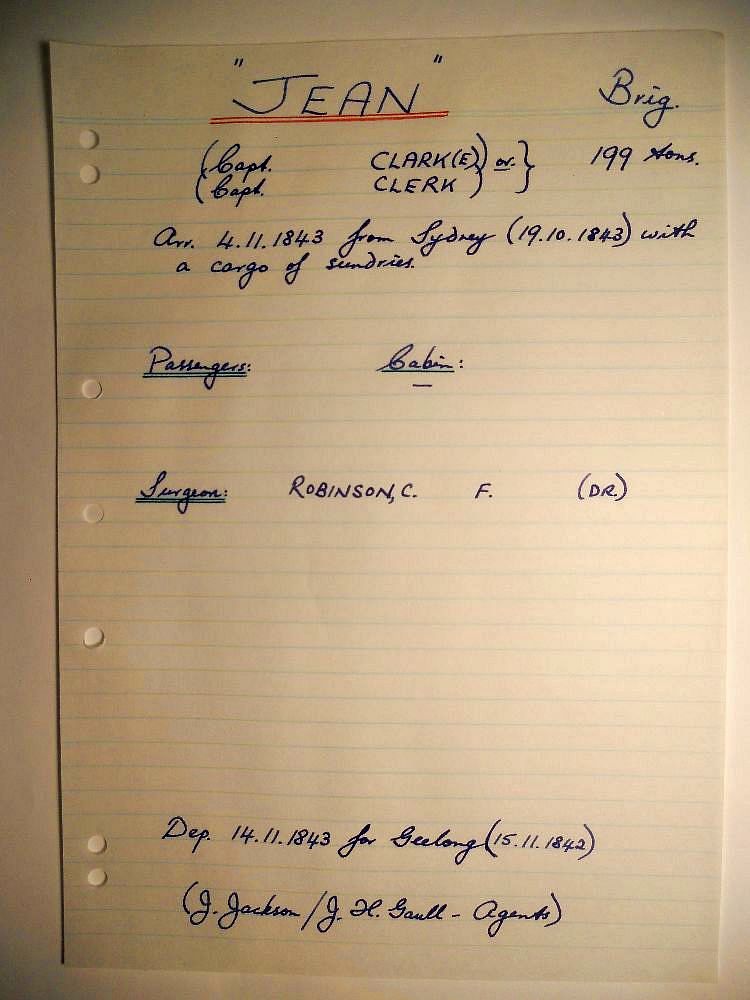 "JEAN" Brig.
(Capt. CLARK(E)) or } 199 tons.
(Capt. CLERK )
Arr. 4.11.1843 from Sydney (19.10.1843) with
a cargo of sundries.
Passengers: Cabin:
—
Surgeon: ROBINSON, C. F. (DR.)
Dep. 14.11.1843 for Geelong (15.11.1842)
(J. Jackson / J. H. Gaull - Agents)